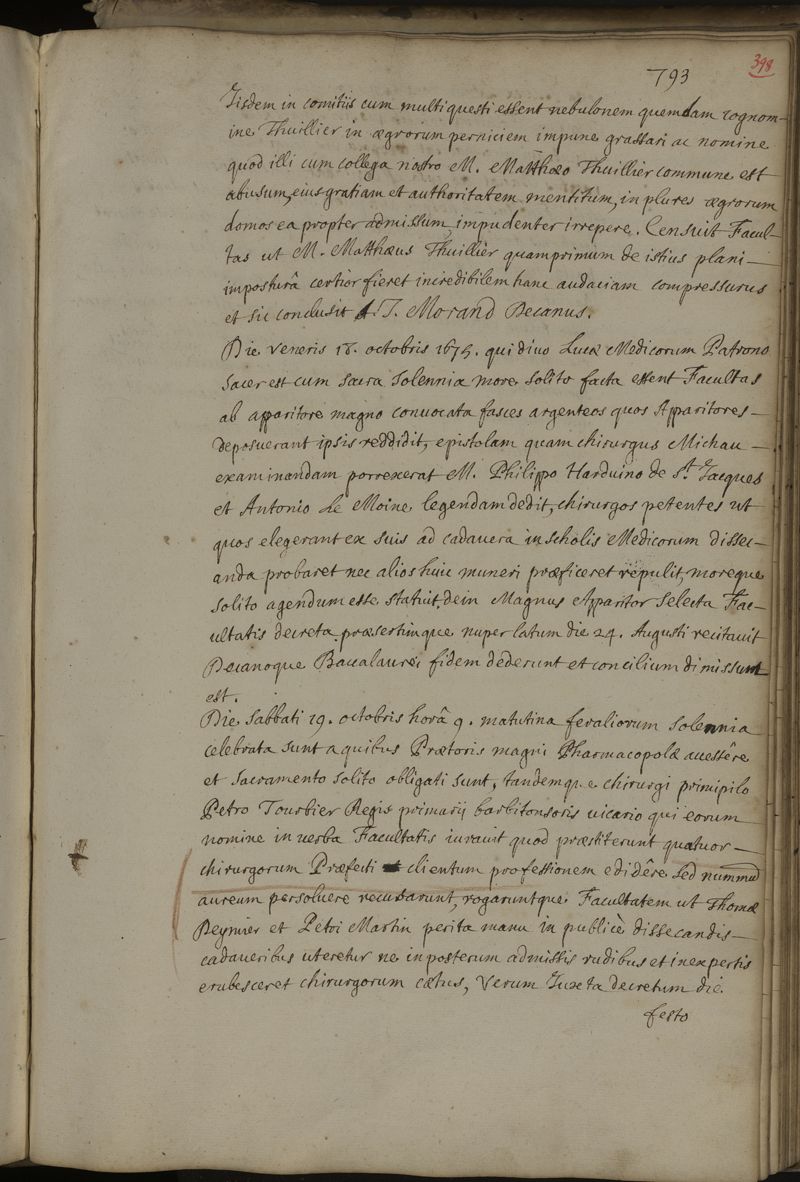 793
398
Iisdem in comitiis cum multi questi essent nebulonem quemdam cognom-
ine Thuillier in ægrorum perniciem impune grassari ac nomine
quod illi cum collega nostro M. Matthæo Thuillier commune est
abusum, eius gratiam et authoritatem mentitum, in plures ægrorum
domos ea propter admissum, impudenter irrepere. Censuit Facul-
tas ut M. Matthæus Thuillier quamprimum de istius plani
imposturâ certior fieret incredibilem hanc audaciam compressurus
et sic conclusit A. J. Morand Decanus.
Die Veneris 18. octobris 1675. qui divo Lucæ Medicorum Patrono
sacer est cum sacra solennia more solito facta essent Facultas
ab apparitore magno convocata fasces argenteos quos Apparitores
deposuerant ipsis reddidit, epistolam quam chirurgus Michau
examinandam porrexerat M. Philippo Harduino de St. Jacques
et Antonio Le Moine legendam dedit, chirurgos petentes ut
quos elegerant ex suis ad cadavera in scholis Medicorum dissec-
anda probaret nec alios huic muneri præficeret repulit, moreque
solito agendum esse statuit, dein Magnus Apparitor selecta Fac-
ultatis decreta præsertimque nuper latum die 24. Augusti recitavit
Decanoque Baccalaurei fidem dederunt et concilium dimissum
est.
Die Sabbati 19. octobris horâ 9. matutina feraliorum solennia
celebrata sunt a quibus Prætoris magni Pharmacopolæ accessêre
et sacramento solito obligati sunt, tandemque chirurgi primipilo
Petro Tourbier Regis primarij barbitonsoris vicario qui eorum
nomine in verba Facultatis iuravit quod præstiterunt quatuor
chirurgorum Præfecti clientum professionem edidêre sed nummum
aureum persolvere recusarunt, rogaruntque Facultatem ut Thomæ
Deymier et Petri Martin perita manu in publicè dissecandis
cadaveribus uteretur ne in posterum admissis rudibus et inexpertis
erubesceret chirurgorum cætus, Verum Juxta decretum die
festo